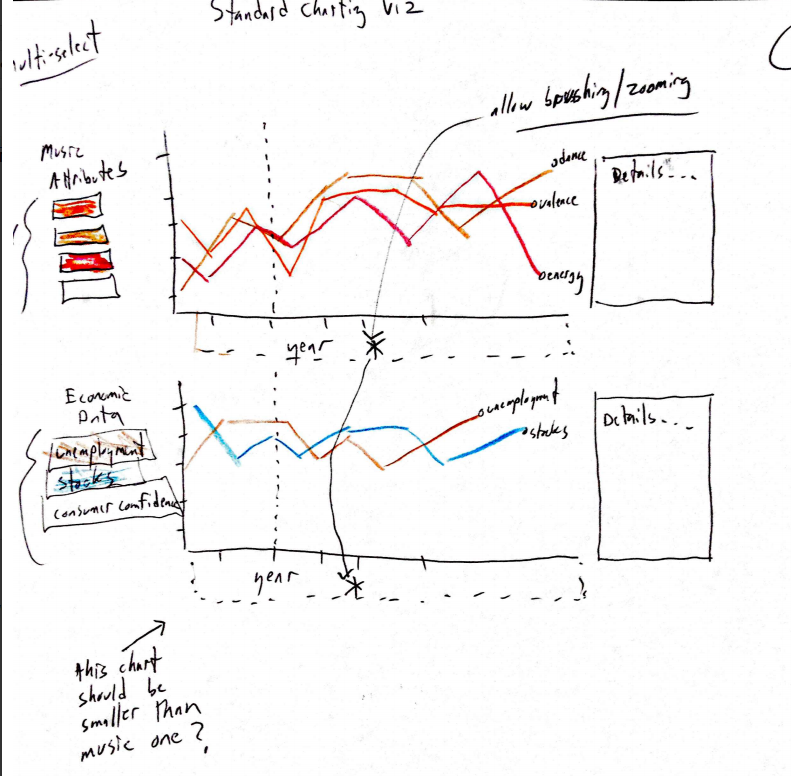 Standard Charting V.2
multi-select
allow brushing/zooming
Music
Attributes
dance
valence
energy
Details...
year
Economic
Data
unemployment
stocks
consumer confidence
unemployment
stocks
Details...
year
this chart
should be
smaller than
music one?